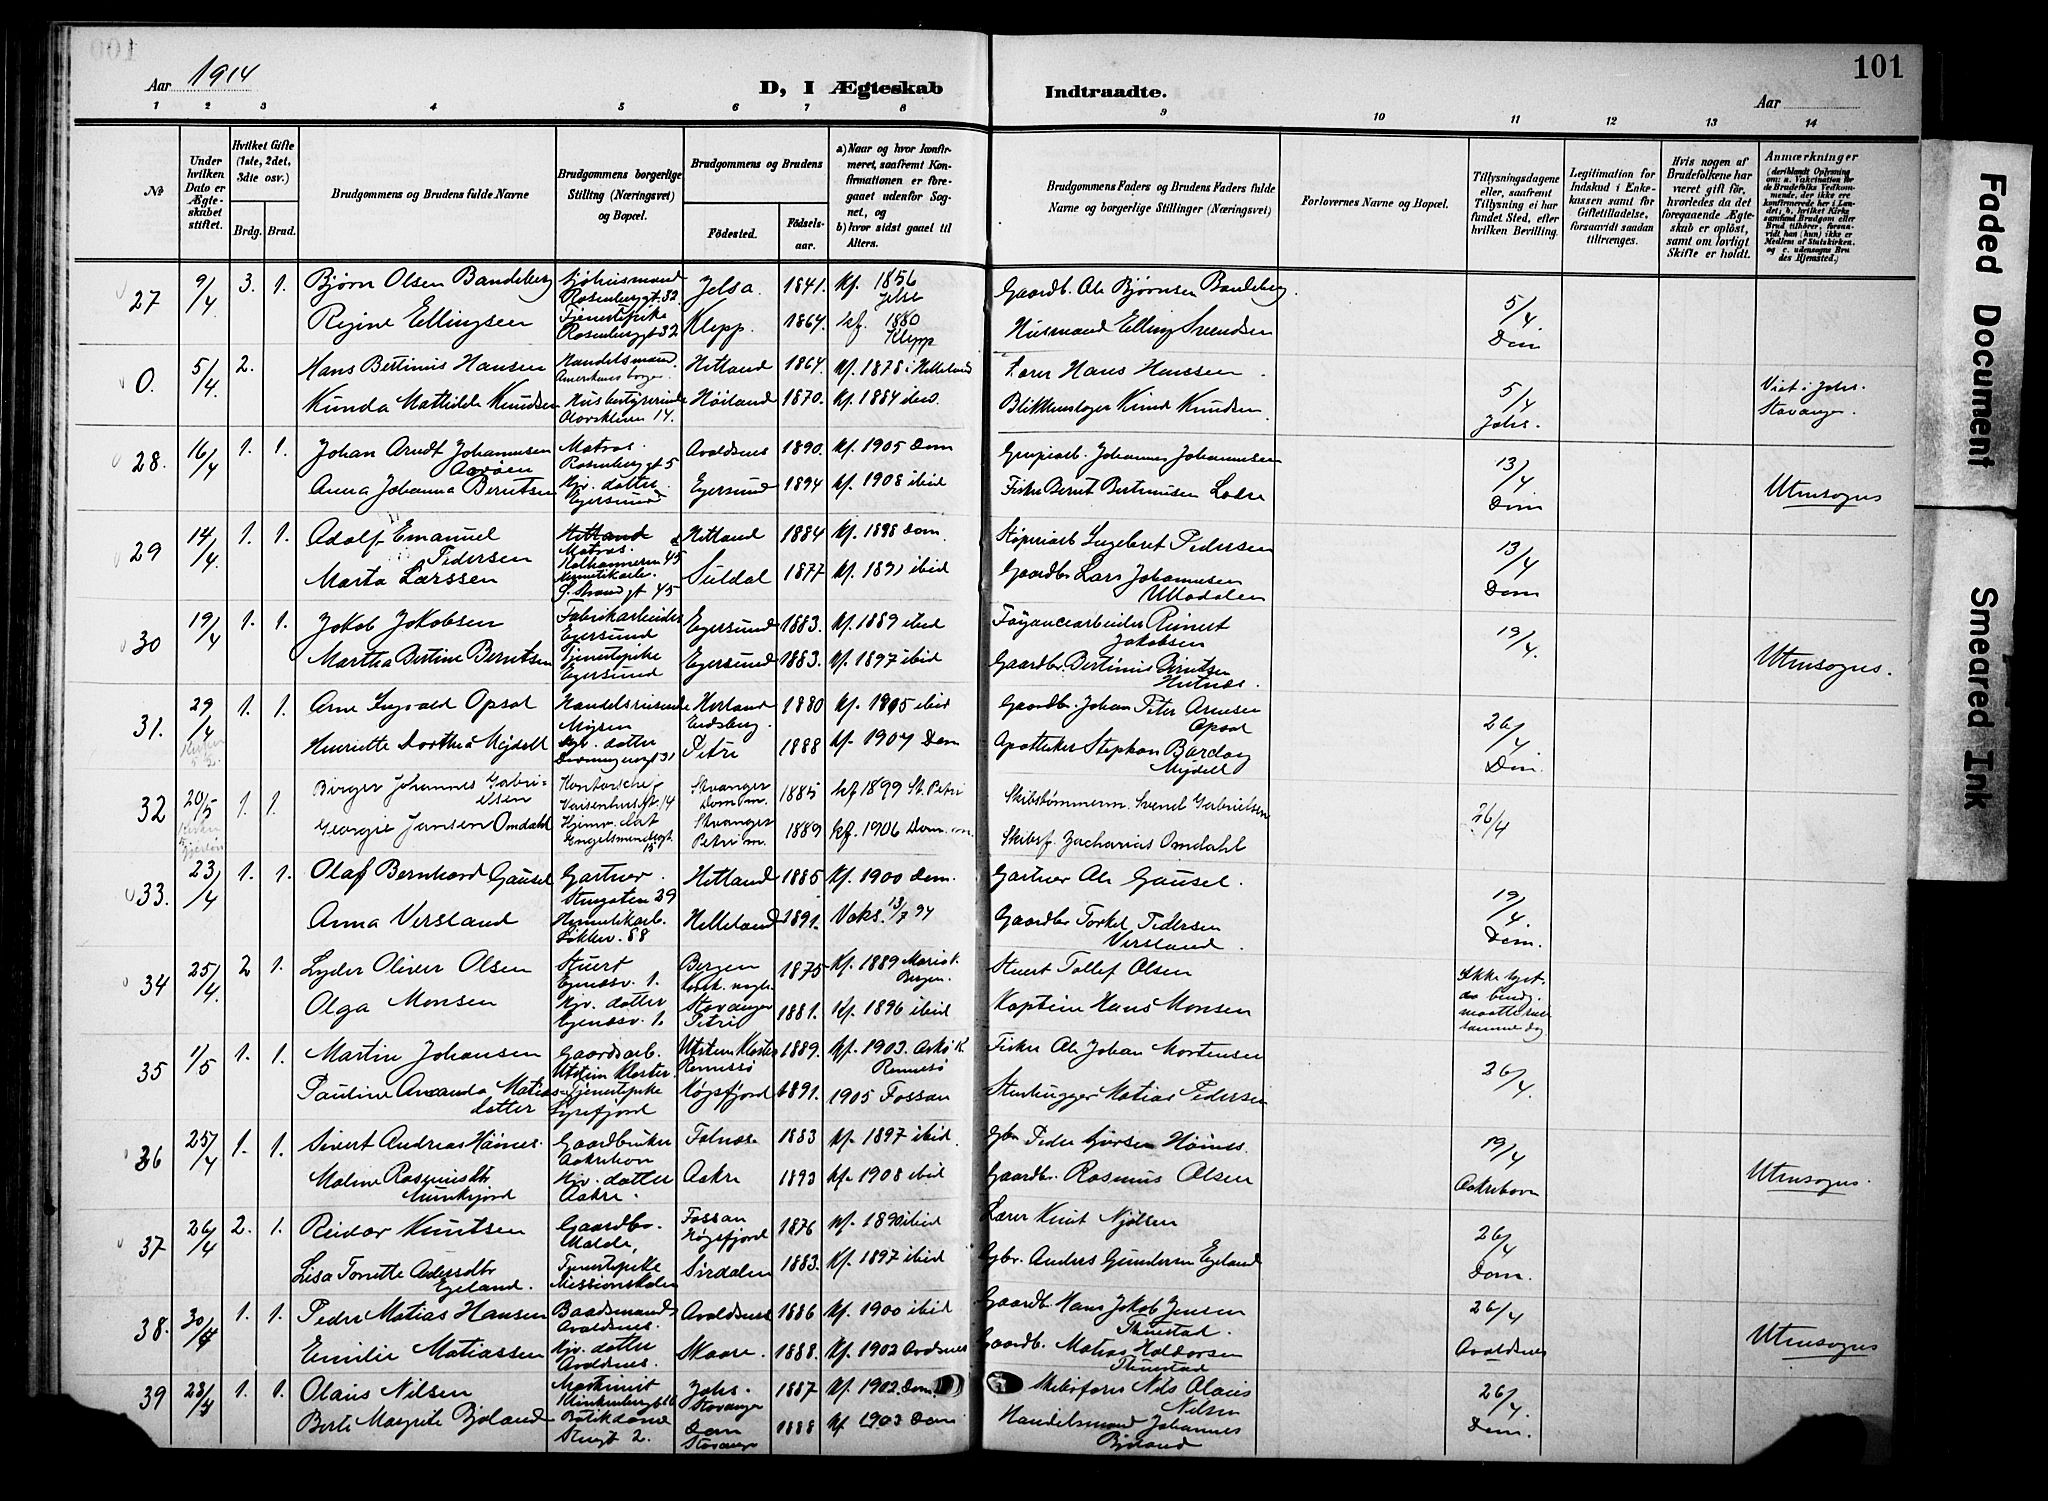 100
101
Aar 1914
D, I Ægteskab
Indtraadte.
Aar
1 2 3 4 5 6 7 8
9 10 11 12 13 14
№
Under hvilken Dato er Ægteskabet stiftet.
Hvilket Gifte (1ste, 2det, 3die osv.)
Brdg. Brud.
Brudgommens og Brudens fulde Navne
Brudgommens borgerlige Stilling (Næringsvei) og Bopæl.
Brudgommens og Brudens
Fødested. Fødselsaar.
a) Naar og hvor konfirmeret, saafremt Konfirmationen er foregaaet udenfor Sognet, og
b) hvor sidst gaaet til Alters.
Brudgommens Faders og Brudens Faders fulde Navne og borgerlige Stillinger (Næringsvei)
Forlovernes Navne og Bopæl.
Tillysningsdagene eller, saafremt Tillysning ei har fundet Sted, efter hvilken Bevilling.
Legitimation for Indskud i Enkekassen samt for Giftetilladelse, forsaavidt saadan tiltrænges.
Hvis nogen af Brudefolkene har været gift før, hvorledes da det foregaaende Ægteskab er opløst, samt om lovligt Skifte er holdt.
Anmærkninger
(deriblandt Oplysning om: a. Vakcination for de Brudefolks Vedkommende, der ikke ere konfirmerede her i Landet; b. hvilket Kirkesamfund Brudgom eller Brud tilhører, forsaavidt han (hun) ikke er Medlem af Statskirken, og c. udensogns Brudes Hjemsted.)
27 9/4 3. 1. Bjørn Olsen Bandeberg Sjøhusmand Rosenberggt. 32 Jelsa. 1841. kf. 1856 Jelse Gaardb. Ole Bjørnsen Bandeberg. 5/4 Dom
Regine Ellingsen Tjenestepike Rosenberggt 32 Klepp. 1864. kf. 1880 Klepp Husmand Elling Svendsen
0. 5/4 2. Hans Bertinius Hansen Handelsmand. Hetland 1864. kf. 1878 i Helleland Lærer Hans Hanssen. 5/4 Johs. Viet i Johs. Stavanger.
Kunda Mathilde Knudsen Husbestyrerinde 14. Høiland 1870. kf. 1884 ibid. Blikkenslager Knud Knudsen
28. 16/4 1. 1. Johan Arndt Johannesen Matros. Rosenberggt 5 Avaldsnes 1890. kf. 1905 Dom Johannes Johannesen 13/4 Dom Utensogns
Anna Johanna Berntsen Hjv. datter. Egersund Egersund 1894 kf. 1908 ibid Fisker Bernt
29 14/4. 1. 1. Adolf Emanuel Pedersen Hetland Matros. 45 Hetland 1884 kf. 1898 Dom. Støperiarb Ingebret Pedersen 13/4 Dom
Marta Larssen Hermetikarb. S. Strandgt 45 Suldal 1877 kf. 1891 ibid Gaardbr Lars Johannesen
30 19/4 1. 1. Jakob Jakobsen Fabrikarbeider Egersund Egersund 1883. kf. 1889 ibid Fayancearbeider Reinert Jakobsen 19/4. Utensogns.
Martha Bertine Berntsen Tjenestepike Egersund Egersund 1883. kf. 1897 ibid Gaardbr. Bertinius Berntsen
31. 29/4 1. 1. Arne Ingvald Opsal Handelsreisende Mysen Eidsberg. 1880 kf. 1905 ibid Gaardb. Johan Peter Arnesen Opsal 26/4 Dom.
Henriette Dorthea Mejdell Hjv. datter 31 Petri 1888 kf. 1904 Dom Apotheker Stephan Barday Mejdell
32 20/5 1. 1. Birger Johannes Gabrielsen Kontorchef Vaisenhusgt. 14 Stavanger Dom m. 1885 kf 1899 St. Petri Skibstømmerm. Svend Gabrielsen 26/4
Georgie Jansen Omdahl Hjemv. dat Engelsmindegt. 15 Stavanger Petri m. 1889 kf. 1906 Dom. m. Skibsf. Zacharias Omdahl
33. 23/4 1. 1. Olaf Bernhard Gausel Gartner. 29 Hetland 1885 kf. 1900 Dom. Gartner Ole Gausel. 19/4 Dom.
Anna Versland Hermetikarb. Løkkev. 88 Helleland 1891. Vaks. 13/7 94 Gaardbr Torkel Pedersen Versland.
34 25/4. 2 1. Lyder Oliver Olsen Stuert Egenæsv. 1. Bergen 1875 kf. 1889 Maria k. Bergen. Stuert Tollef Olsen
Olga Monsen Hjv. datter Egenæsv. 1. Stavanger Petri 1881. kf. 1896 ibid Kaptein Hans Monsen samme dag
35 1/5 1. 1. Martin Johansen Gaardsarb. Utstein Kloster Utstein Kloster Rennesø 1889. kf. 1903. Rennesø Fisker Ole Johan Mortensen 26/4.
Pauline Amanda Matiasdatter Tjenestepike Lysefjord Høgsfjord 1891. 1905 Fossan Stenhugger Matias Pedersen
36 25/4 1. 1. Sivert Andreas Høines. Gaardbruker Aakrehavn Falnæs 1883 kf. 1897 ibid. Gbr Peder Høines. 19/4 Aakrehavn Utensogns.
Maline Rasmusdtr Hjv. datter Aakre. Aakre 1893 kf. 1908 ibid Gaardbr. Rasmus Olsen
37 26/4 2. 1. Reidar Knutsen Gaardbr. Malde, Fossan Høgsfjord 1876 kf. 1890 ibid Lærer Knut Njølsen 26/4 Dom.
Lisa Tonette Andersdtr Egeland. Tjenestepike Missionskolen Sirdalen 1883. kf. 1897 ibid Gbr. Anders Gundersen Egeland
38. 30/4 1. 1. Peder Matias Hansen Baadsmand Avaldsnes. Avaldsnes 1886 kf. 1900 ibid Gaardb. Hans Jakob Jensen 26/4 Avaldsnes Utensogns
Emilie Matiassen Hjv. datter Avaldsnes. Skaare. 1888. kf. 1902 Avaldsnes Gaardb. Matias Haldorsen
39 28/4 1. 1. Olaus Nilsen Maskinist Johs. Stavanger 1887 kf. 1902. Dom. Skibsfører Nils Olaus Nilsen 26/4. Dom.
Berte Margrete Bjeland Butikdame 2. Dom Stavanger 1888 kf 1903 Dom Handelsmand Johannes Bjeland
Faded Document
Smeared Ink